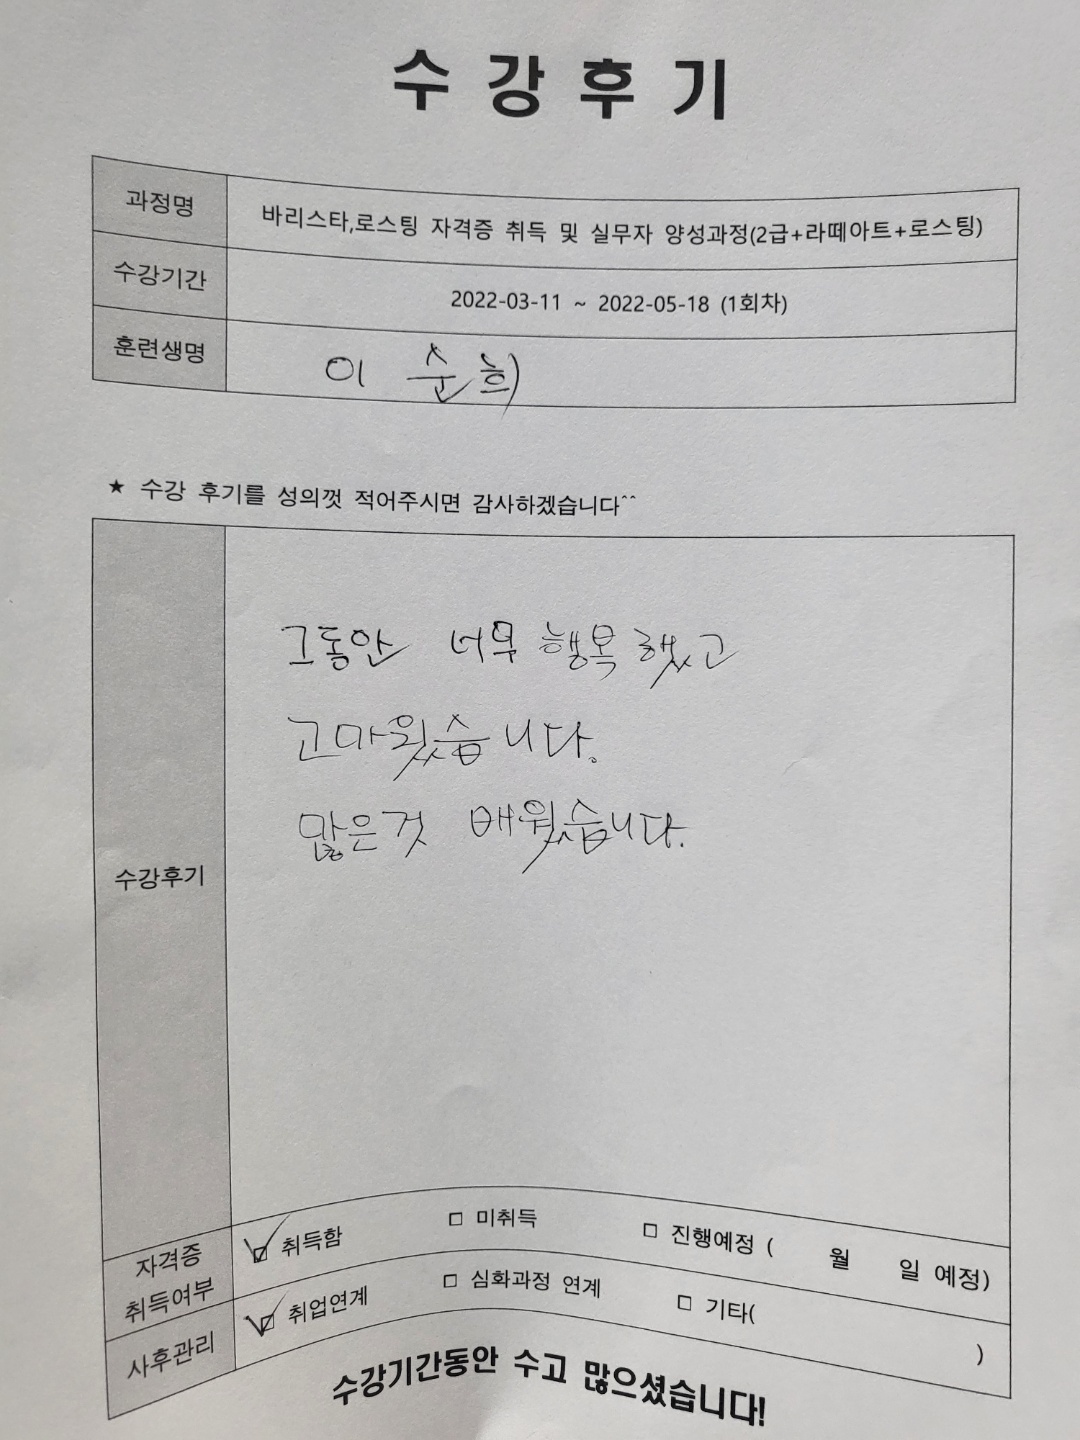 수강후기
과정명 바리스타,로스팅 자격증 취득 및 실무자 양성과정(2급+라떼아트+로스팅)
수강기간 2022-03-11 ~ 2022-05-18 (1회차)
훈련생명 이 순희
★ 수강 후기를 성의껏 적어주시면 감사하겠습니다^^
그동안 너무 행복했고
고마웠습니다.
많은것 배웠습니다.
수강후기
자격증
취득여부
☑ 취득함 □ 미취득 □ 진행예정 ( 월 일 예정)
사후관리 ☑ 취업연계 □ 심화과정 연계 □ 기타( )
수강기간동안 수고 많으셨습니다!